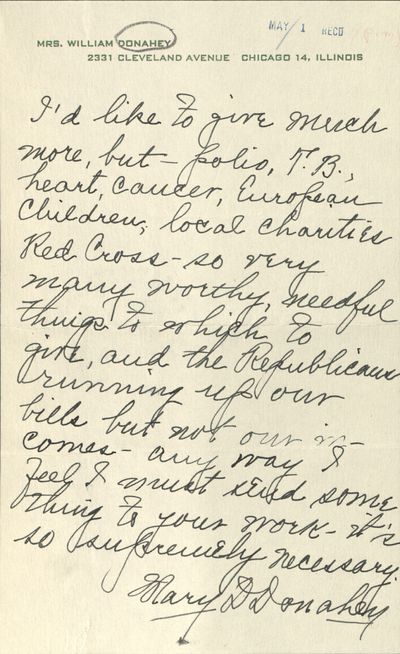 MAY 1 RECD
MRS. WILLIAM DONAHEY
2331 CLEVELAND AVENUE CHICAGO 14, ILLINOIS
I'd like to give much
more, but - polio, T.B.,
heart, cancer, European
Children, local charities
Red Cross - so very
many worthy, needful
things to which to
give, and the Republicans
running up our
bills but not our in-
comes - any way I
feel I must send some
thing to your work - it's
so supremely necessary.
Mary D Donahey